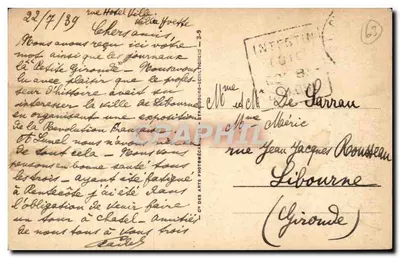 22/7/39 rue Hotel Ville
Chers amis,
Nous avons reçu ici votre
mot ainsi que les journaux
La Petite Gironde. Nous avons
lu avec plaisir que le profes-
seur d'histoire avait su
intéresser la ville de Libourne
en organisant une exposition
de la Révolution française
et Lunel nous n'avons
de tout cela. Nous
en bonne santé tous
les trois. ayant été fatigué
à Pentecôte j'ai été dans
l'obligation de venir faire
un tour à Chatel. amitiés
de nous tous à vous trois
Mme et Mr De Sarran
Mme Méric
rue Jean Jacques Rousseau
Libourne
(Gironde)